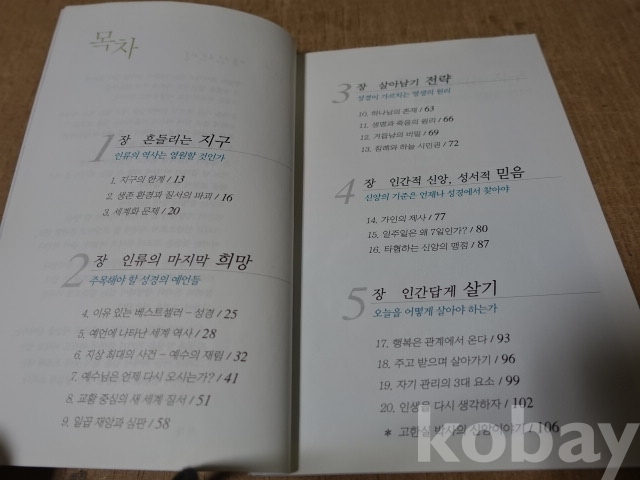 목차
1장 흔들리는 지구
인류의 역사는 영원할 것인가
1. 지구의 한계 / 13
2. 생존 환경과 질서의 파괴 / 16
3. 세계화 문제 / 20
2장 인류의 마지막 희망
주목해야 할 성경의 예언들
4. 이유 있는 베스트셀러 - 성경 / 25
5. 예언에 나타난 세계 역사 / 28
6. 지상 최대의 사건 - 예수의 재림 / 32
7. 예수님은 언제 다시 오시는가? / 41
8. 교황 중심의 새 세계 질서 / 51
9. 일곱 재앙과 심판 / 58
3장 살아남기 전략
성경이 가르치는 영생의 원리
10. 하나님의 존재 / 63
11. 생명과 죽음의 원리 / 66
12. 거듭남의 비밀 / 69
13. 침례와 하늘 시민권 / 72
4장 인간적 신앙, 성서적 믿음
신앙의 기준은 언제나 성경에서 찾아야
14. 가인의 제사 / 77
15. 일주일은 왜 7일인가? / 80
16. 타협하는 신앙의 맹점 / 87
5장 인간답게 살기
오늘을 어떻게 살아야 하는가
17. 행복은 관계에서 온다 / 93
18. 주고 받으며 살아가기 / 96
19. 자기 관리의 3대 요소 / 99
20. 인생을 다시 생각하자 / 102
* 고한실 박사의 신앙이야기 / 106
kobay